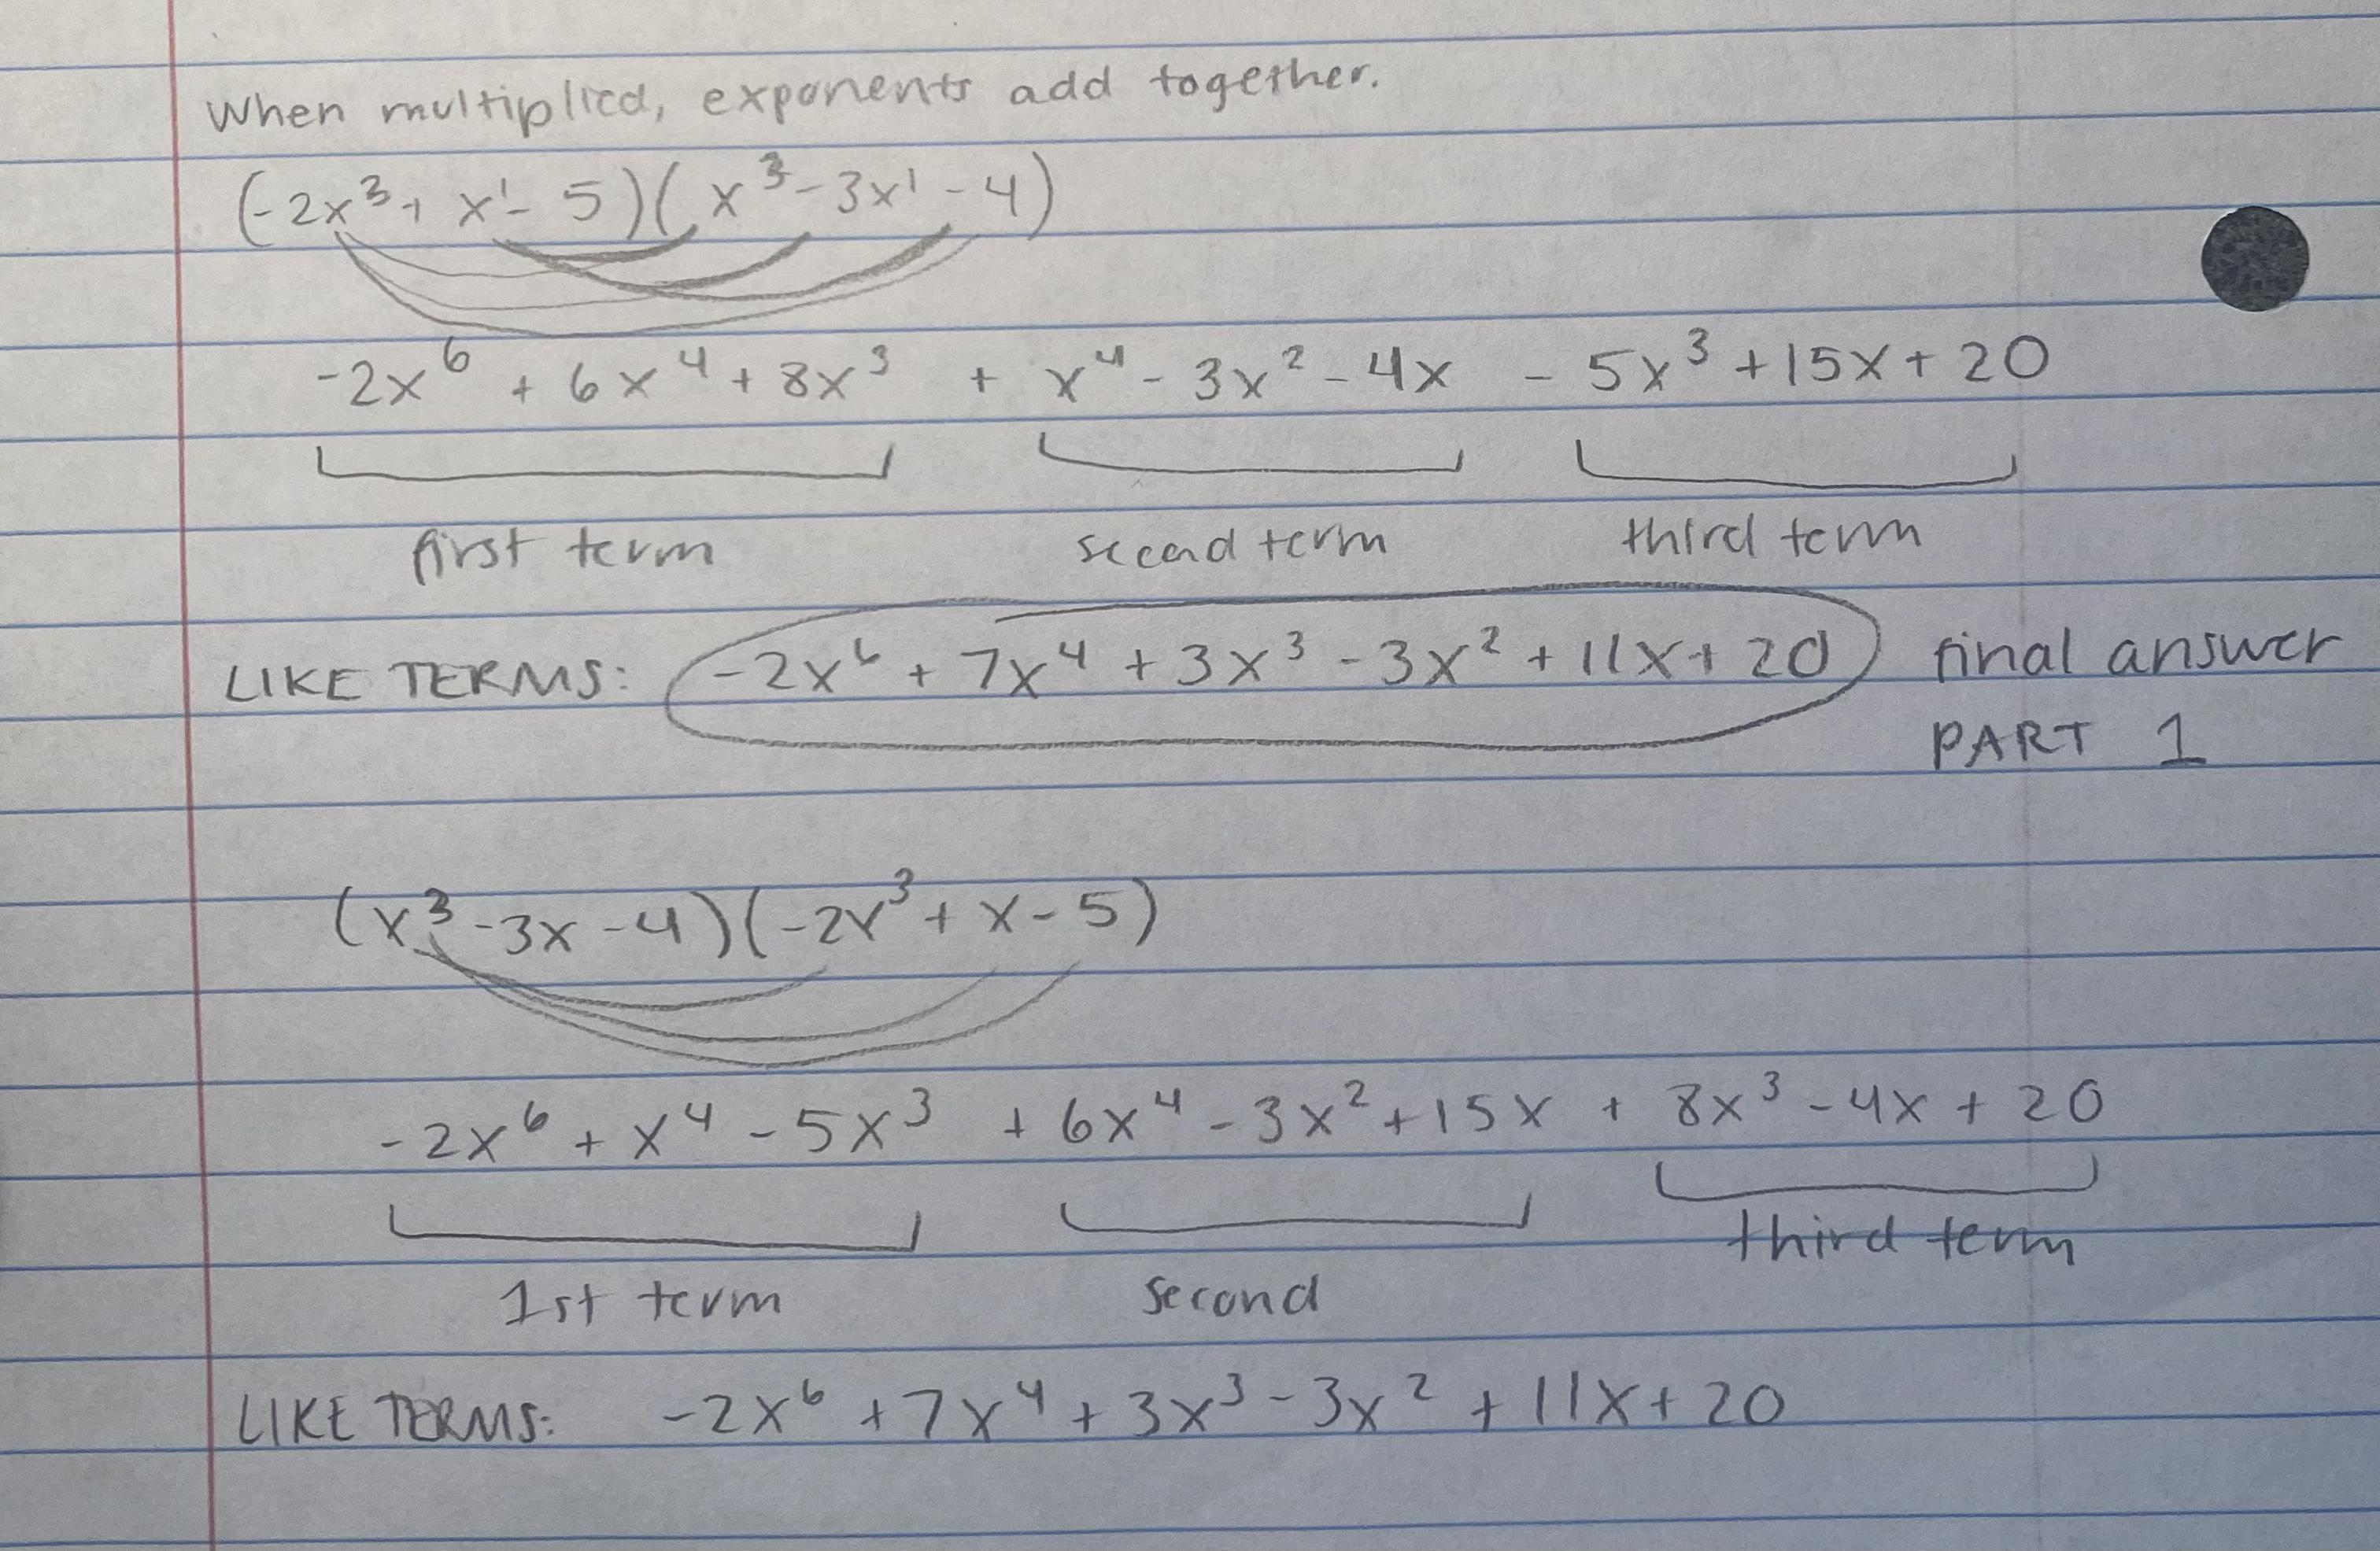 When multiplied, exponents add together.
(-2x³ + x¹ - 5)(x³ - 3x¹ - 4)
-2x⁶ + 6x⁴ + 8x³ + x⁴ - 3x² - 4x - 5x³ + 15x + 20
first term second term third term
LIKE TERMS: -2x⁶ + 7x⁴ + 3x³ - 3x² + 11x + 20 final answer
PART 1
(x³ - 3x - 4)(-2x³ + x - 5)
-2x⁶ + x⁴ - 5x³ + 6x⁴ - 3x² + 15x + 8x³ - 4x + 20
third term
1st term second
LIKE TERMS: -2x⁶ + 7x⁴ + 3x³ - 3x² + 11x + 20